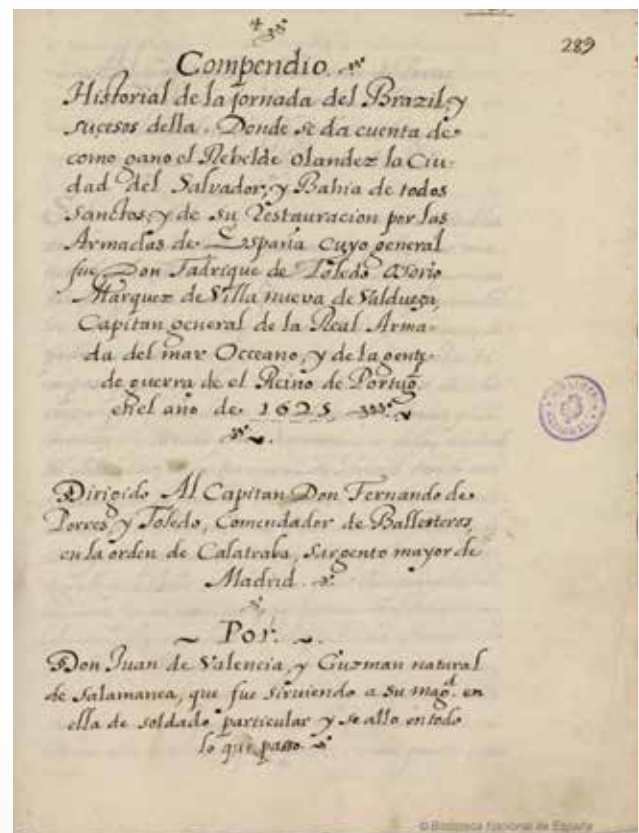 289
Compendio.
Historial de la jornada del Brazil, y
sucesos della. Donde se da cuenta de
como gano el Rebelde olandez la Ciu-
dad del Salvador, y Bahia de todos
Sanctos, y de su Restauracion por las
Armadas de España cuyo general
fue Don Fadrique de Toledo osorio
Marquez de Villa nueva de Valdueza,
Capitan general de la Real Arma-
da del mar Occeano, y de la gente
de guerra de el Reino de Portugˡ.
en el año de 1625
Dirigido Al Capitan Don Fernando de
Porres, y Toledo, Comendador de Ballesteros,
en la orden de Calatraba, Sargento mayor de
Madrid.
Por.
Don Juan de Valencia, y Guzman natural
de Salamanca, que fue sirviendo a su magᵈ. en
ella de soldado particular y se allo en todo
lo que passo.
© Biblioteca Nacional de España